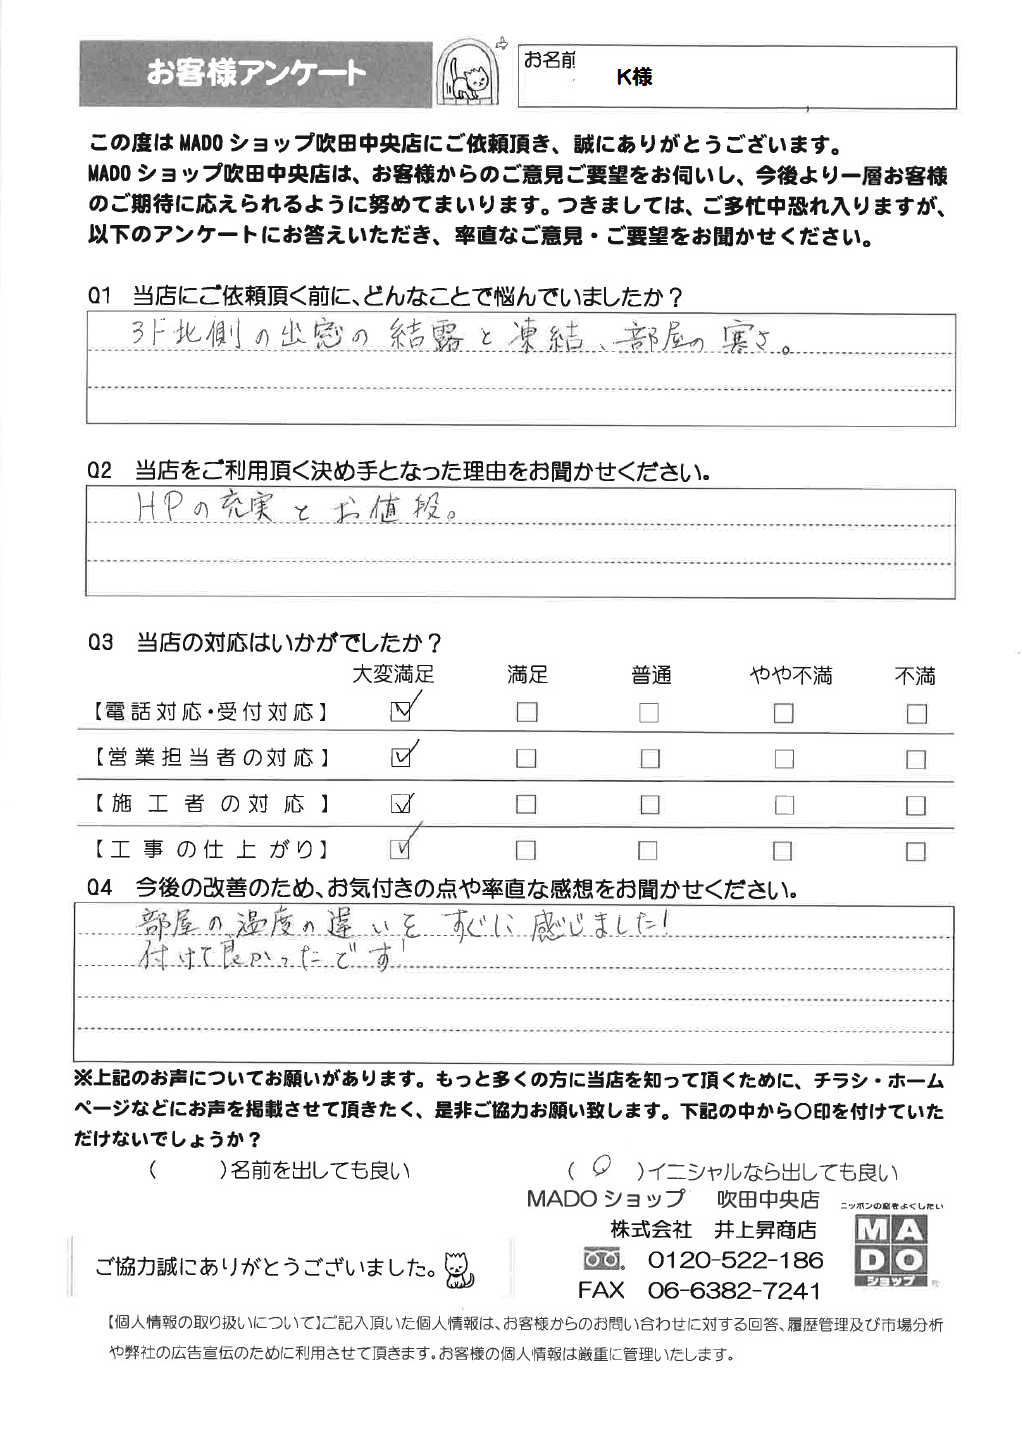 お客様アンケート
お名前
K様
この度は MADO ショップ吹田中央店にご依頼頂き、誠にありがとうございます。
MADO ショップ吹田中央店は、お客様からのご意見ご要望をお伺いし、今後より一層お客様
のご期待に応えられるように努めてまいります。つきましては、ご多忙中恐れ入りますが、
以下のアンケートにお答えいただき、率直なご意見・ご要望をお聞かせください。
Q1 当店にご依頼頂く前に、どんなことで悩んでいましたか？
3F北側の出窓の結露と凍結、部屋の寒さ。
Q2 当店をご利用頂く決め手となった理由をお聞かせください。
HPの充実とお値段。
Q3 当店の対応はいかがでしたか？
大変満足 満足 普通 やや不満 不満
【電話対応・受付対応】
【営業担当者の対応】
【施工者の対応】
【工事の仕上がり】
Q4 今後の改善のため、お気付きの点や率直な感想をお聞かせください。
部屋の温度の違いをすぐに感じました!
付けて良かったです!
※上記のお声についてお願いがあります。もっと多くの方に当店を知って頂くために、チラシ・ホーム
ページなどにお声を掲載させて頂きたく、是非ご協力お願い致します。下記の中から〇印を付けていた
だけないでしょうか？
（ ）名前を出しても良い
（ ○ ）イニシャルなら出しても良い
MADO ショップ 吹田中央店
株式会社 井上昇商店
0120-522-186
FAX 06-6382-7241
ニッポンの窓をよくしたい
MA
DO
ショップ
ご協力誠にありがとうございました。
【個人情報の取り扱いについて】ご記入頂いた個人情報は、お客様からのお問い合わせに対する回答、履歴管理及び市場分析
や弊社の広告宣伝のために利用させて頂きます。お客様の個人情報は厳重に管理いたします。